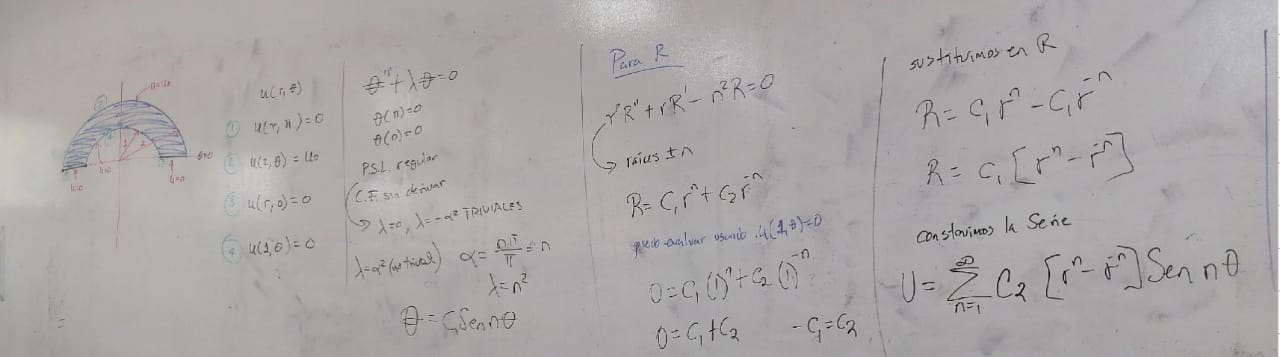 u=u₀
2
1
2
θ=0
u=0
u=0
u=0
u(r,θ)
① u(r,π)=0
② u(2,θ) = u₀
③ u(r,0)=0
④ u(1,θ)=0
Θ"+λΘ=0
Θ(π)=0
Θ(0)=0
P.S.L. regular
C.F. sin derivar
→ λ=0, λ=-α² TRIVIALES
λ=α² (no trivial) α = nπ/π = n
λ=n²
Θ = C₁ Sen nθ
Para R
r²R"+rR'-n²R=0
→ raices ±n
R= C₁rⁿ + C₂r⁻ⁿ
evaluar usando u(1,θ)=0
0=C₁(1)ⁿ+C₂(1)⁻ⁿ
0=C₁+C₂ -C₁=C₂
sustituimos en R
R= C₁rⁿ - C₁r⁻ⁿ
R= C₁[rⁿ-r⁻ⁿ]
Construimos la Serie
U= ∑ₙ₌₁^∞ C₂ [rⁿ-r⁻ⁿ] Sen nθ